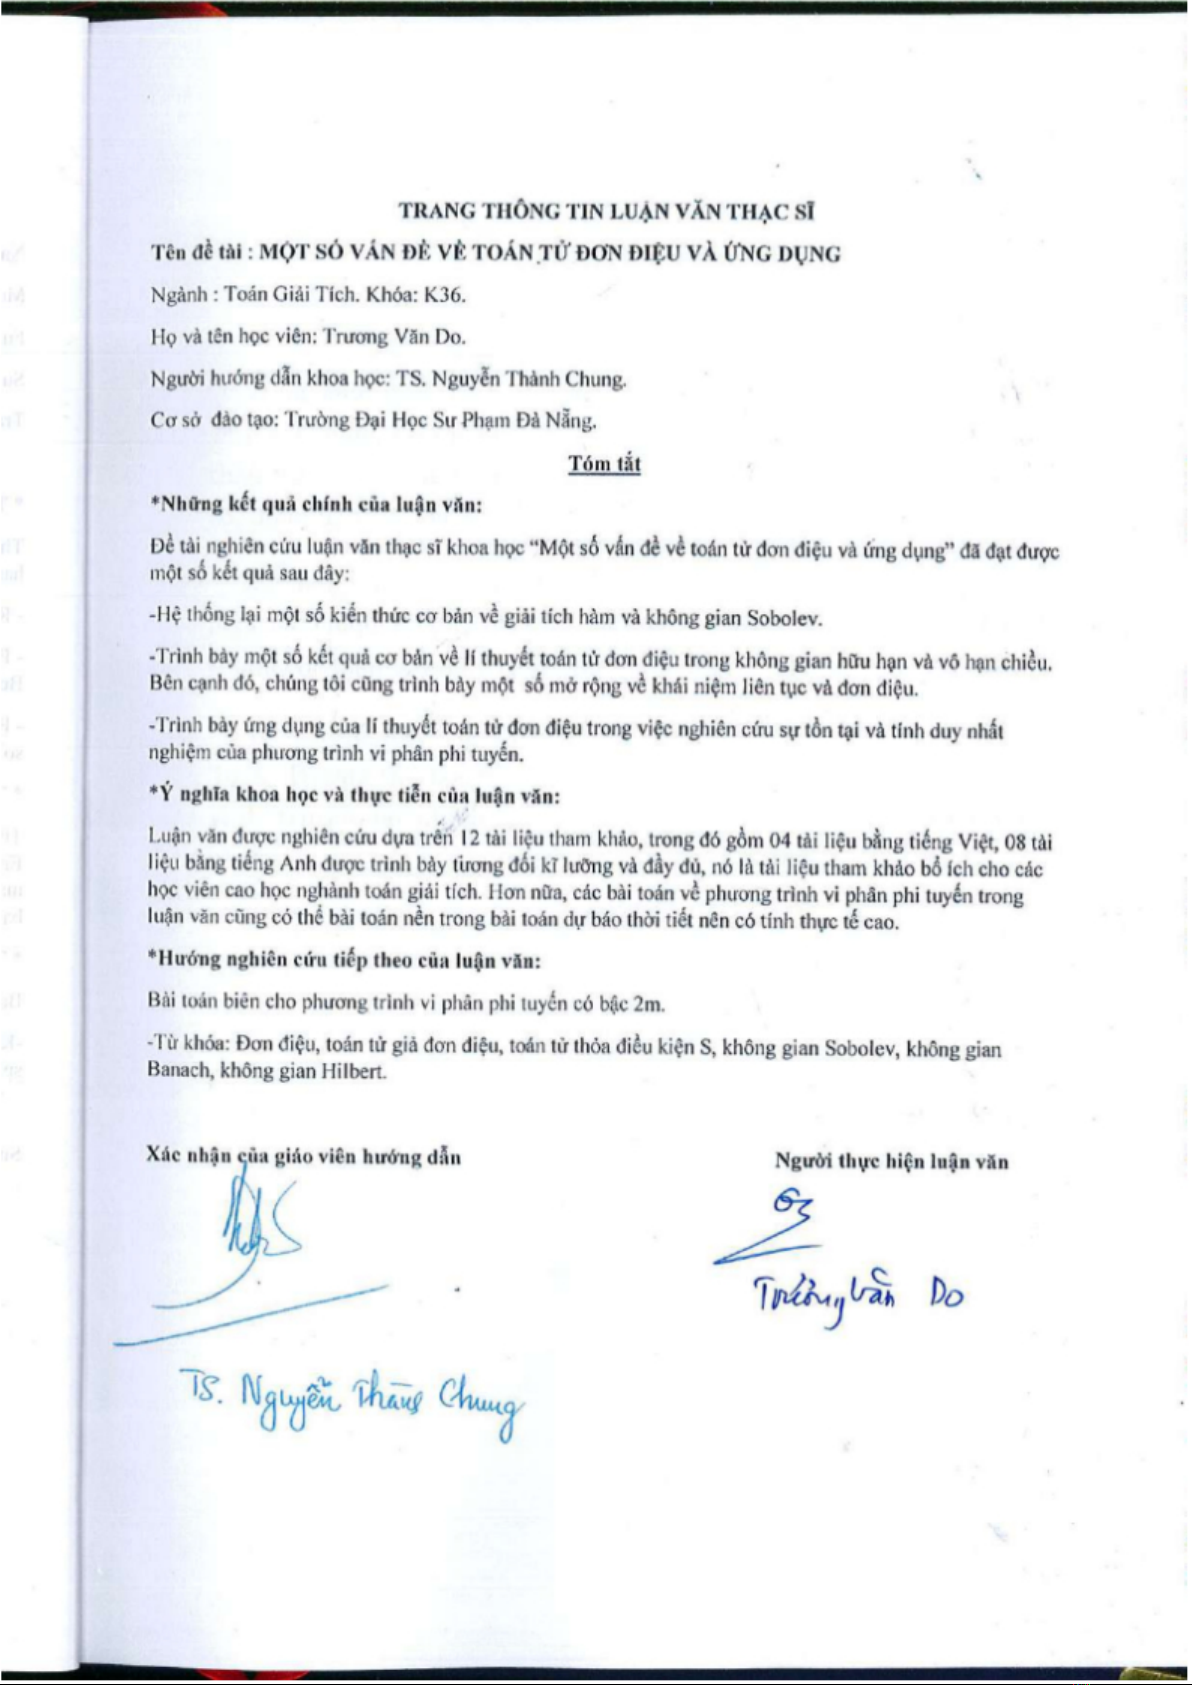 TRANG THÔNG TIN LUẬN VĂN THẠC SĨ
Tên đề tài : MỘT SỐ VẤN ĐỀ VỀ TOÁN TỬ ĐƠN ĐIỆU VÀ ỨNG DỤNG
Ngành : Toán Giải Tích. Khóa: K36.
Họ và tên học viên: Trương Văn Do.
Người hướng dẫn khoa học: TS. Nguyễn Thành Chung.
Cơ sở đào tạo: Trường Đại Học Sư Phạm Đà Nẵng.
Tóm tắt
*Những kết quả chính của luận văn:
Đề tài nghiên cứu luận văn thạc sĩ khoa học “Một số vấn đề về toán tử đơn điệu và ứng dụng” đã đạt được
một số kết quả sau đây:
-Hệ thống lại một số kiến thức cơ bản về giải tích hàm và không gian Sobolev.
-Trình bày một số kết quả cơ bản về lí thuyết toán tử đơn điệu trong không gian hữu hạn và vô hạn chiều.
Bên cạnh đó, chúng tôi cũng trình bày một số mở rộng về khái niệm liên tục và đơn điệu.
-Trình bày ứng dụng của lí thuyết toán tử đơn điệu trong việc nghiên cứu sự tồn tại và tính duy nhất
nghiệm của phương trình vi phân phi tuyến.
*Ý nghĩa khoa học và thực tiễn của luận văn:
Luận văn được nghiên cứu dựa trên 12 tài liệu tham khảo, trong đó gồm 04 tài liệu bằng tiếng Việt, 08 tài
liệu bằng tiếng Anh được trình bày tương đối kĩ lưỡng và đầy đủ, nó là tài liệu tham khảo bổ ích cho các
học viên cao học nghành toán giải tích. Hơn nữa, các bài toán về phương trình vi phân phi tuyến trong
luận văn cũng có thể bài toán nền trong bài toán dự báo thời tiết nên có tính thực tế cao.
*Hướng nghiên cứu tiếp theo của luận văn:
Bài toán biên cho phương trình vi phân phi tuyến có bậc 2m.
-Từ khóa: Đơn điệu, toán tử giả đơn điệu, toán tử thỏa điều kiện S, không gian Sobolev, không gian
Banach, không gian Hilbert.
Xác nhận của giáo viên hướng dẫn
Người thực hiện luận văn
Trương Văn Do
TS. Nguyễn Thành Chung